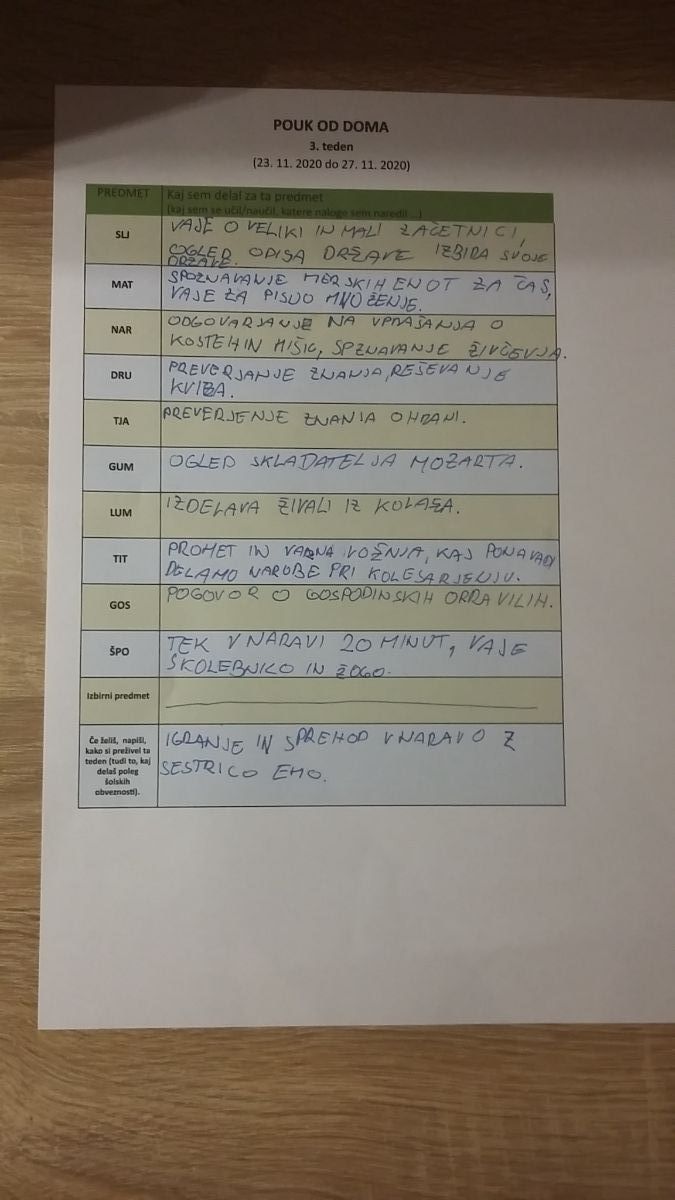 POUK OD DOMA
3. teden
(23. 11. 2020 do 27. 11. 2020)
PREDMET
Kaj sem delal za ta predmet
(kaj sem se učil/naučil, katere naloge sem naredil ...)
SLJ
VAJE O VELIKI IN MALI ZAČETNICI,
OGLED OPISA DRŽAVE IZBIRA SVOJE
DRŽAVE.
MAT
SPOZNAVANJE MERSKIH ENOT ZA ČAS,
VAJE ZA PISNO MNOŽENJE.
NAR
ODGOVARJANJE NA VPRAŠANJA O
KOSTEH IN MIŠIC, SPZNAVANJE ŽIVČEVJA.
DRU
PREVERJANJE ZNANJA, REŠEVANJE
KVIZA.
TJA
PREVERJENJE ZNANJA O HRANI.
GUM
OGLED SKLADATELJA MOZARTA.
LUM
IZDELAVA ŽIVALI IZ KOLAŽA.
TIT
PROMET IN VARNA VOŽNJA, KAJ PONAVADI
DELAMO NAROBE PRI KOLESARJENJU.
GOS
POGOVOR O GOSPODINSKIH OPRAVILIH.
ŠPO
TEK V NARAVI 20 MINUT, VAJE
S KOLEBNICO IN ŽOGO.
Izbirni predmet
Če želiš, napiši,
kako si preživel ta
teden (tudi to, kaj
delaš poleg
šolskih
obveznosti).
IGRANJE IN SPREHOD V NARAVO Z
SESTRICO EMO.